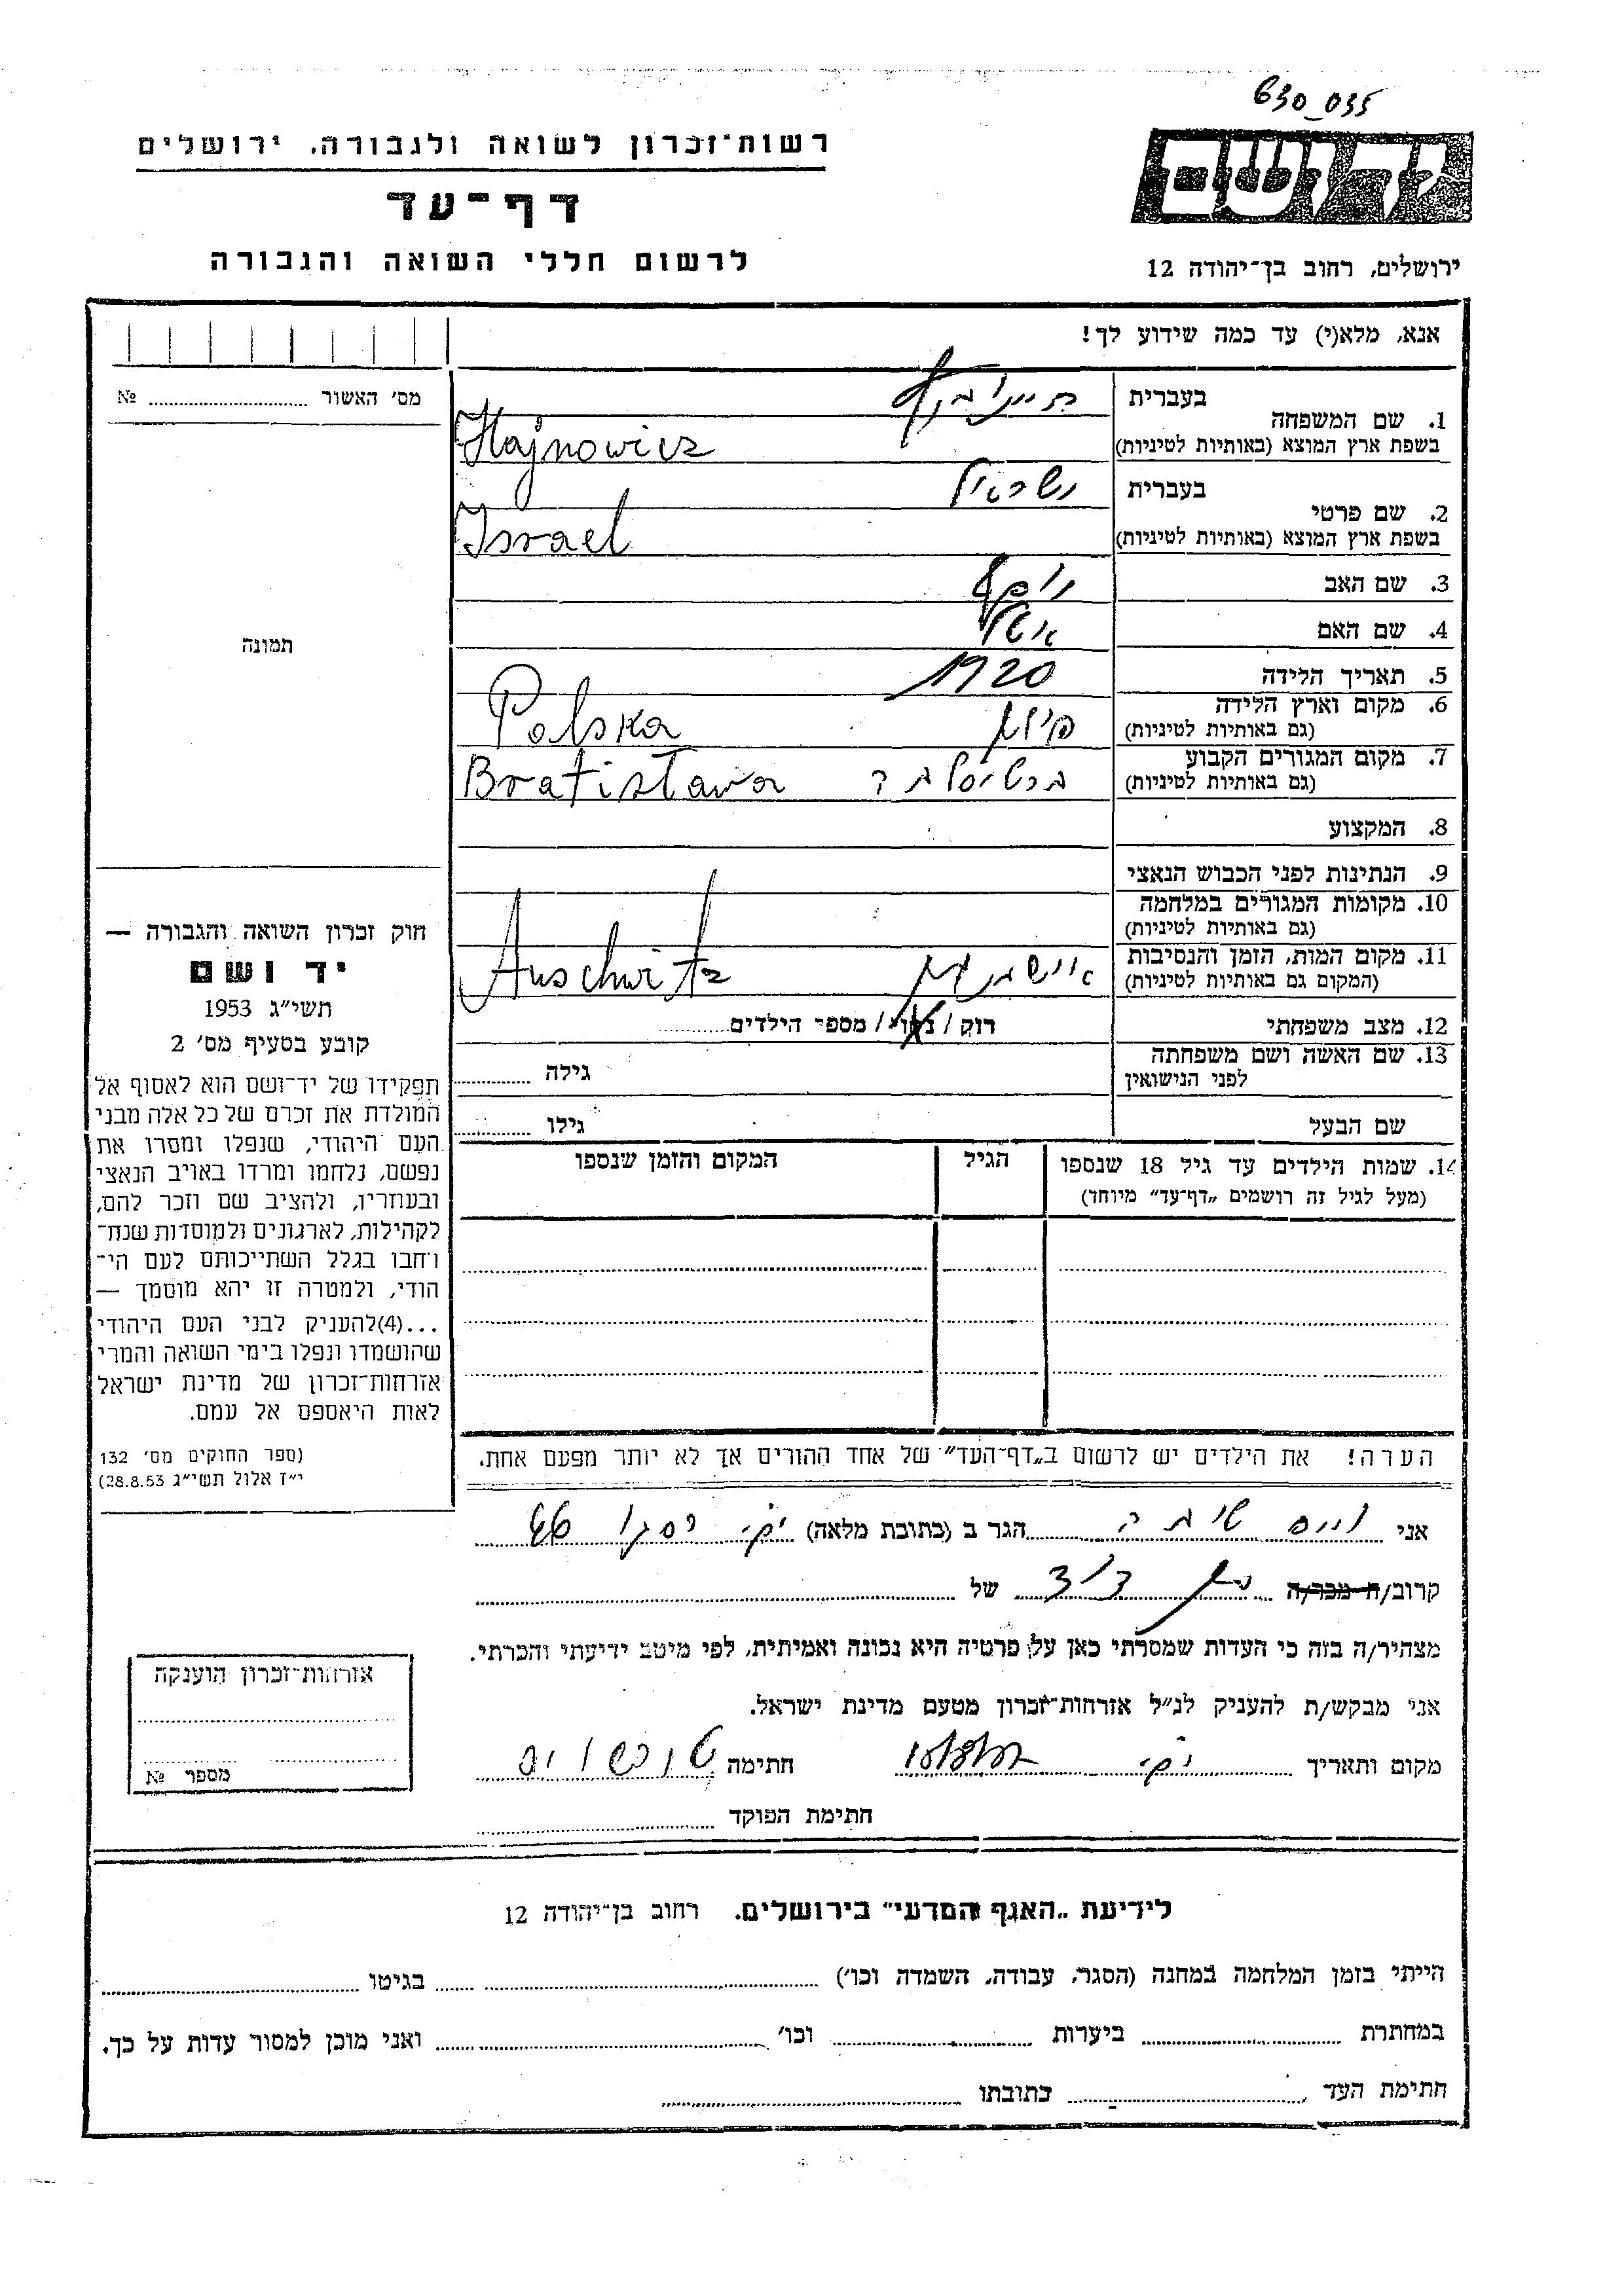 630_035
רשות־זכרון לשואה ולגבורה. ירושלים
יד ושם
דף־עד
לרשום חללי השואה והגבורה
ירושלים, רחוב בן־יהודה 12
אנא, מלא(י) עד כמה שידוע לך!
מס׳ האשור № ..........
1. שם המשפחה
בעברית
בשפת ארץ המוצא (באותיות לטיניות)
Hajnowicz
2. שם פרטי
בעברית ישראל
בשפת ארץ המוצא (באותיות לטיניות)
Israel
3. שם האב יוסף
4. שם האם
5. תאריך הלידה 1920
6. מקום וארץ הלידה
(גם באותיות לטיניות)
פולין Polska
7. מקום המגורים הקבוע
(גם באותיות לטיניות)
ברטיסלבה Bratisława
8. המקצוע
9. הנתינות לפני הכבוש הנאצי
10. מקומות המגורים במלחמה
(גם באותיות לטיניות)
11. מקום המות, הזמן והנסיבות
(המקום גם באותיות לטיניות)
אוישבוץ Auschwitz
12. מצב משפחתי רוק / נשוי / מספר הילדים..........
13. שם האשה ושם משפחתה
לפני הנישואין
גילה ..........
שם הבעל גילו ..........
14. שמות הילדים עד גיל 18 שנספו
(מעל לגיל זה רושמים „דף־עד״ מיוחד)
הגיל
המקום והזמן שנספו
הערה! את הילדים יש לרשום ב„דף־העד״ של אחד ההורים אך לא יותר מפעם אחת.
תמונה
חוק זכרון השואה והגבורה —
יד ושם
תשי״ג 1953
קובע בסעיף מס׳ 2
תפקידו של יד־ושם הוא לאסוף אל
המולדת את זכרם של כל אלה מבני
העם היהודי, שנפלו ומסרו את
נפשם, נלחמו ומרדו באויב הנאצי
ובעוזריו, ולהציב שם וזכר להם,
לקהילות, לארגונים ולמוסדות שנח־
רחבו בגלל השתייכותם לעם הי־
הודי, ולמטרה זו יהא מוסמך —
...(4)להעניק לבני העם היהודי
שהושמדו ונפלו בימי השואה והמרי
אזרחות־זכרון של מדינת ישראל
לאות היאספם אל עמם.
(ספר החוקים מס׳ 132
י״ז אלול תשי״ג 28.8.53)
אני וויס טובה הגר ב (כתובת מלאה)
קרוב/ה מכר/ה בן דוד של ..........
מצהיר/ה בזה כי העדות שמסרתי כאן על פרטיה היא נכונה ואמיתית, לפי מיטב ידיעתי והכרתי.
אני מבקש/ת להעניק לנ״ל אזרחות־זכרון מטעם מדינת ישראל.
מקום ותאריך חתימה
חתימת הפוקד ..........
אזרחות־זכרון הוענקה
מספר №
לידיעת „האגף המדעי״ בירושלים. רחוב בן־יהודה 12
הייתי בזמן המלחמה במחנה (הסגר, עבודה, השמדה וכו׳) .......... בגיטו ..........
במחתרת .......... ביערות .......... וכו׳ .......... ואני מוכן למסור עדות על כך.
חתימת העד .......... כתובתו ..........